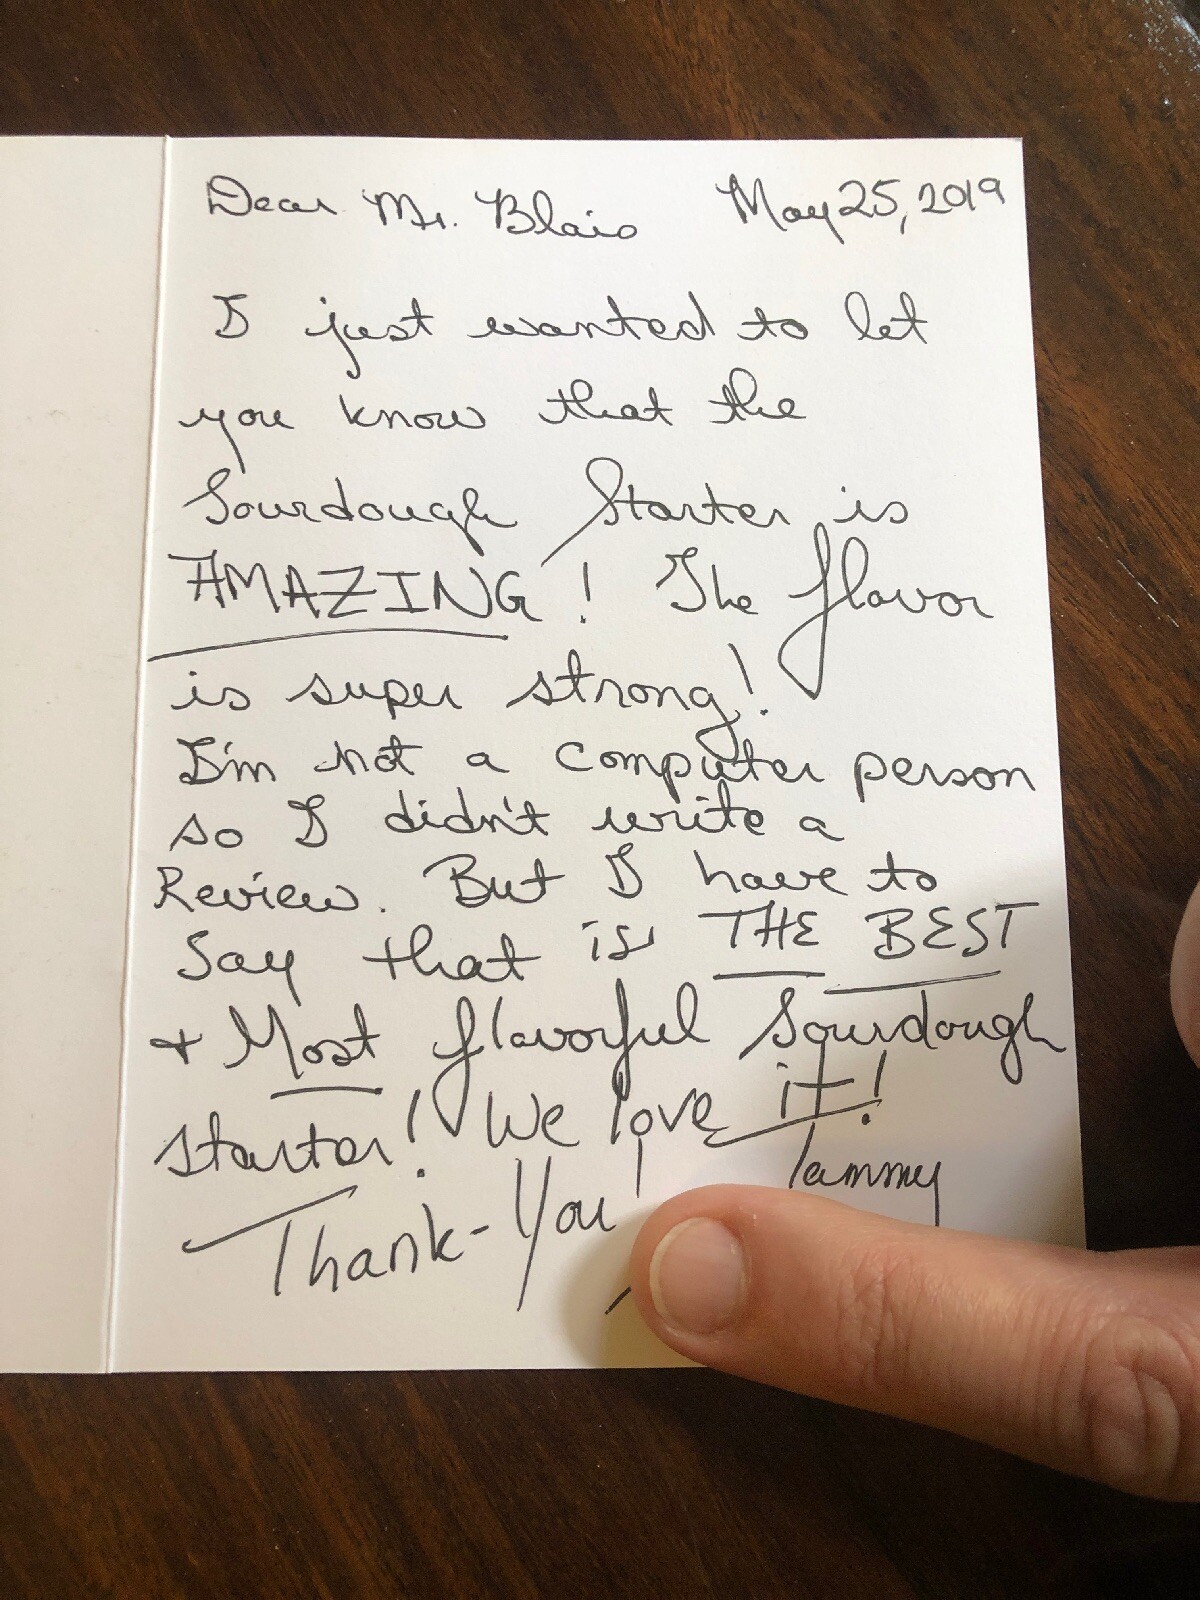 Dear Mr. Blais May 25, 2019
I just wanted to let
you know that the
Sourdough Starter is
AMAZING! The flavor
is super strong!
I'm not a computer person
so I didn't write a
Review. But I have to
Say that is THE BEST
+ Most flavorful Sourdough
starter! We love it!
Tammy
Thank-You!